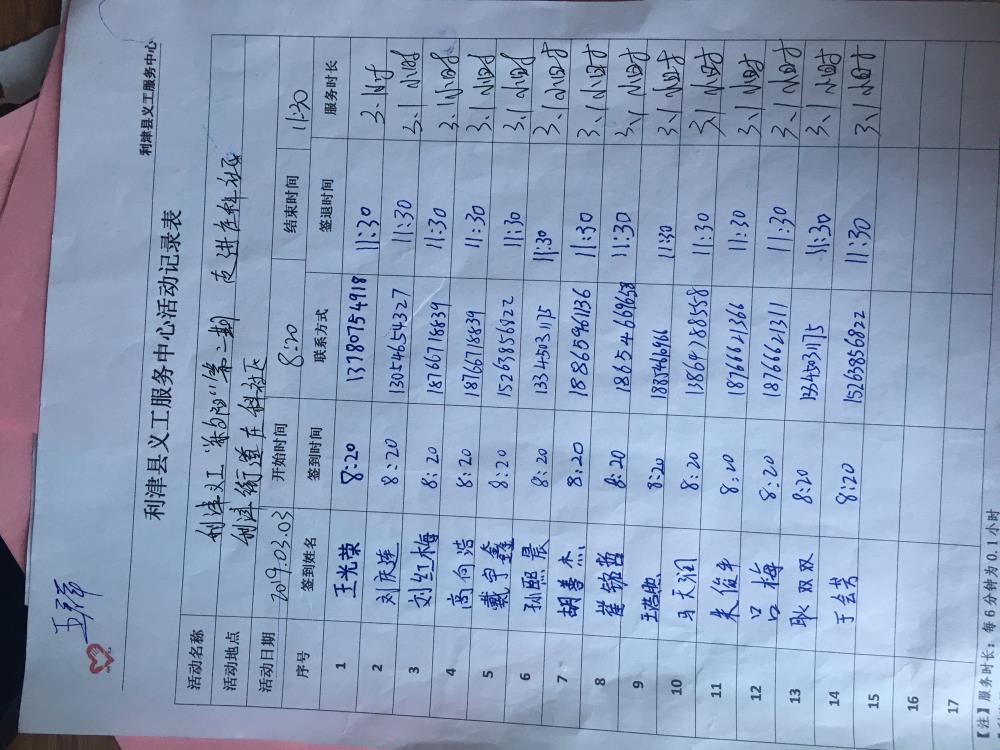 利津县义工服务中心
利津县义工服务中心活动记录表
活动名称 利津义工 第二期 走进庄科社区
活动地点 利津街道庄科社区
活动日期 2019.03.03 开始时间 8:20 结束时间 11:30
序号 签到姓名 签到时间 联系方式 签退时间 服务时长
1 王光荣 8:20 13780754918 11:30 3.1小时
2 刘庆连 8:20 13054654327 11:30 3.1小时
3 刘红梅 8:20 18766718839 11:30 3.1小时
4 高向浩 8:20 18766718839 11:30 3.1小时
5 戴宇鑫 8:20 15263856922 11:30 3.1小时
6 孙熙晨 8:20 13345031175 11:30 3.1小时
7 胡善杰 8:20 18865961136 11:30 3.1小时
8 崔铭哲 8:20 11:30 3.1小时
9 王浩 8:20 11:30 3.1小时
10 马天润 8:20 13864288558 11:30 3.1小时
11 朱俊平 8:20 18766621366 11:30 3.1小时
12 吕梅 8:20 18766621311 11:30 3.1小时
13 耿双双 8:20 13345031175 11:30 3.1小时
14 于会芸 8:20 15263856822 11:30 3.1小时
15
16
17
【注】服务时长：每6分钟为0.1小时